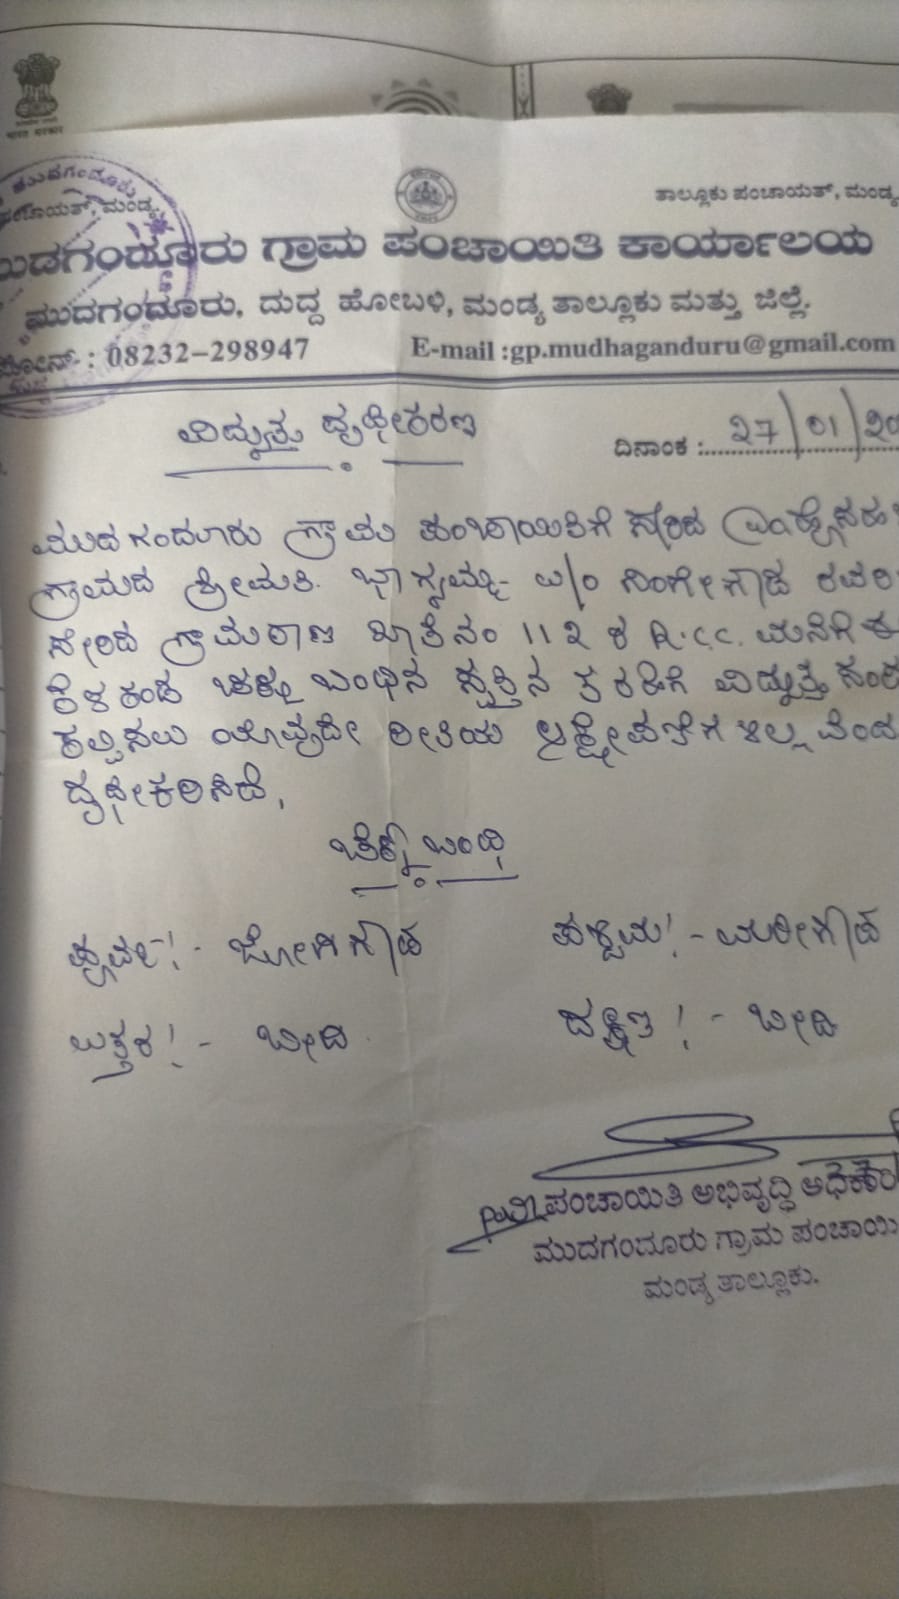 भारत सरकार
ಮುದಗಂದೂರು
ಪಂಚಾಯತ್, ಮಂಡ್ಯ
ತಾಲ್ಲೂಕು ಪಂಚಾಯತ್, ಮಂಡ್ಯ
ಮುದಗಂದೂರು ಗ್ರಾಮ ಪಂಚಾಯಿತಿ ಕಾರ್ಯಾಲಯ
ಮುದಗಂದೂರು, ದುದ್ದ ಹೋಬಳಿ, ಮಂಡ್ಯ ತಾಲ್ಲೂಕು ಮತ್ತು ಜಿಲ್ಲೆ.
ಫೋನ್ : 08232-298947 E-mail :gp.mudhaganduru@gmail.com
ವಿದ್ಯುತ್ತು ದೃಢೀಕರಣ
ದಿನಾಂಕ : 27/01/20
ಮುದಗಂದೂರು ಗ್ರಾಮ ಪಂಚಾಯಿತಿಗೆ ಸೇರಿದ
ಗ್ರಾಮದ ಶ್ರೀಮತಿ. ಭಾಗ್ಯಮ್ಮ W/O ನಿಂಗೇಗೌಡ ರವರಿ
ಸೇರಿದ ಗ್ರಾಮಠಾಣ ಖಾತೆ ನಂ 112 ರ R.C.C. ಮನೆಗೆ ಈ
ಕೆಳಕಂಡ ಚಕ್ಕುಬಂಧಿನ ಸ್ವತ್ತಿನ ವಿದ್ಯುತ್ತ್ ಸಂಪ
ಕಲ್ಪಿಸಲು ಯಾವುದೇ ರೀತಿಯ ಆಕ್ಷೇಪಣೆಗಳಿಲ್ಲವೆಂದ
ದೃಢೀಕರಿಸಿದೆ,
ಚೆಕ್ಕುಬಂಧಿ
ಪೂರ್ವ!- ಜೋಗಿಗೌಡ ಪಶ್ಚಿಮ!- ಮರೀಗೌಡ
ಉತ್ತರ!- ಬೀದಿ ದಕ್ಷಿಣ!- ಬೀದಿ
ಪಂಚಾಯಿತಿ ಅಭಿವೃದ್ಧಿ ಅಧಿಕಾರಿ
ಮುದಗಂದೂರು ಗ್ರಾಮ ಪಂಚಾಯಿ
ಮಂಡ್ಯ ತಾಲ್ಲೂಕು.